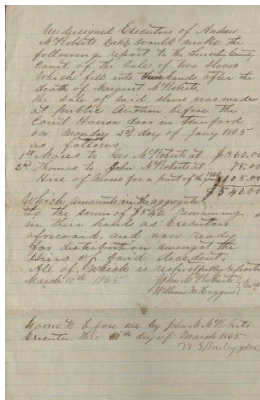 Undersigned Executors of Andrew
McRoberts Decd would make the
following report to the Lincoln County
Court of the Sale of two slaves
Which fell into hands after the
death of Margaret McRoberts
the Sale of said slaves was made
at public Auction before the
Court House door in Stanford
on Monday 2d day of Jany 1865
as follows
1st Moses to Geo McRoberts at $360.00
2d Thomas to John McRoberts at 75.00
Hire of Moses for a part of 105.00
$540.00
Which amounts in aggregate
To the sum of $540 remaining
in their hands as Executors
aforesaid and now ready
for distribution amongst the
heirs of said decedent
All of Which is respectfully
March 10th 1865
John McRoberts
William
Sworn to before me by John McRoberts
Executor this day of March 1865